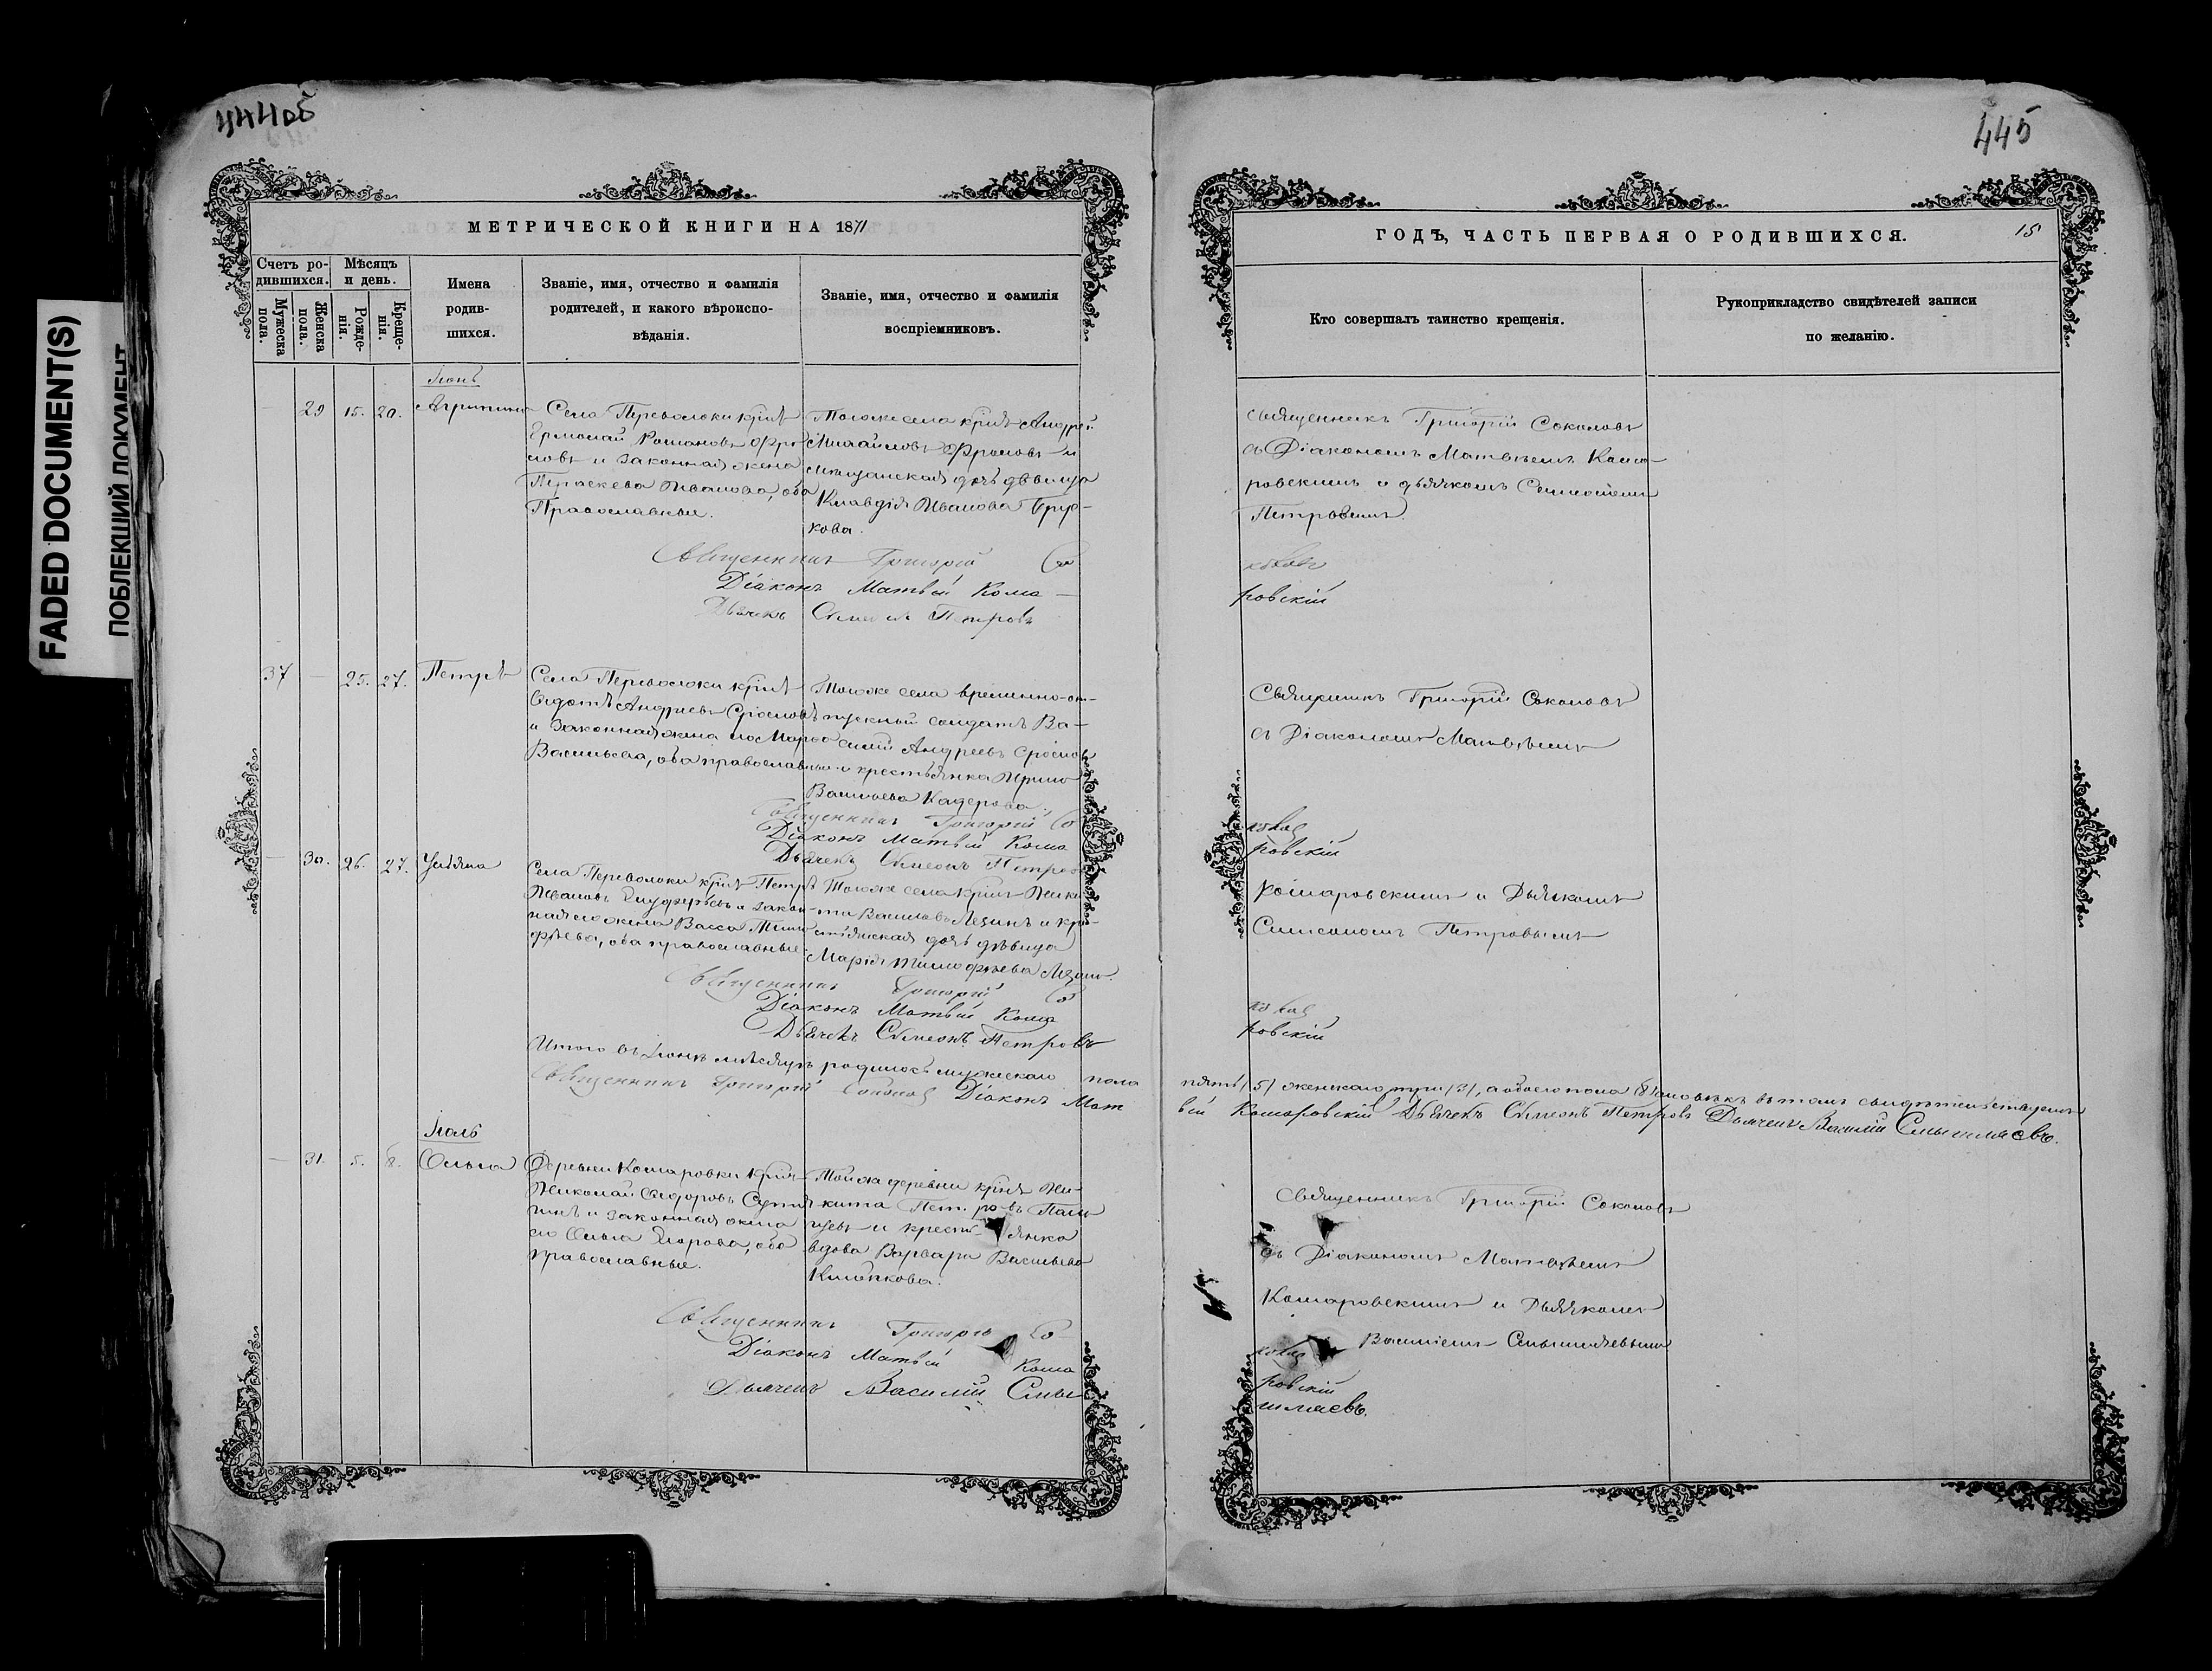 444об
445
FADED DOCUMENT(S)
ПОБЛЕКШИЙ ДОКУМЕНТ
МЕТРИЧЕСКОЙ КНИГИ НА 1871
Счетъ ро-
дившихся.
Мужеска
пола.
Женска
пола.
Мѣсяцъ
и день.
Рожде-
нія.
Креще-
нія.
Имена
родив-
шихся.
Званіе, имя, отчество и фамилія
родителей, и какого вѣроиспо-
вѣданія.
Званіе, имя, отчество и фамилія
воспріемниковъ.
Іюнь
29 15. 20.
Села Переволоки крнъ
Ермолай Романовъ Фро-
ловъ и законная жена
Параскева Иванова, оба
Православные.
Тогоже села крнъ Андрей
Михайловъ Фроловъ и
мѣщанская дочь дѣвица
Клавдія Иванова
кова.
Священникъ Григорій Со
Діаконъ Матвѣй Кома-
Дьячекъ Симеонъ Петровъ
37 - 25. 27. Петръ
Села Переволоки крнъ
Андреевъ
и законная жена его
Васильева, оба православные
Тогоже села временно-от-
пускной солдатъ Ва-
силій Андреевъ
и крестьянка
Васильева Кадерова.
Священникъ Григорій Со
Діаконъ Матвѣй Кома
Дьячекъ Симеонъ Петровъ
- 30. 26. 27. Ульяна
Села Переволоки крнъ Петръ
Ивановъ и закон-
ная его жена Васса Тимо-
фѣева, оба православные.
Тогоже села крнъ Ники-
та Васильевъ и кре-
стьянская дочь дѣвица
Марія Тимофѣева
Священникъ Григорій Со
Діаконъ Матвѣй Кома
Дьячекъ Симеонъ Петровъ
Итого въ Іюнѣ мѣсяцѣ родилось мужескаго пола
Священникъ Григорій Соколов Діаконъ Мат
Іюль
- 31. 5. 8. Ольга
Деревни Комаровки крнъ
Николай Сидоровъ
и законная жена
его Ольга Егорова, оба
православные.
Тойже деревни крнъ Ни-
кита Петровъ
и крестьянка
вдова Варвара Васильева
Священникъ Григорій Со-
Діаконъ Матвѣй Кома
Дьячекъ Василій Смы
ГОДЪ, ЧАСТЬ ПЕРВАЯ О РОДИВШИХСЯ.
15
Кто совершалъ таинство крещенія.
Рукоприкладство свидѣтелей записи
по желанію.
Священникъ Григорій Соколовъ
съ Діакономъ Матвѣемъ Кома-
ровскимъ и дьячкомъ Симеономъ
Петровымъ.
колов
ровскій
Священникъ Григорій Соколовъ
съ Діакономъ Матвѣемъ
колов
ровскій
Комаровскимъ и Дьячкомъ
Симеономъ Петровымъ
колов
ровскій
пять (5) женскаго три (3), а обоего пола (8) человѣкъ въ томъ свидѣтельствуемъ
вѣй Комаровскій Дьячекъ Симеонъ Петровъ Дьячекъ Василій Смышляевъ.
Священникъ Григорій Соколовъ
съ Діакономъ Матвѣемъ
Комаровскимъ и Дьячкомъ
Василіемъ Смышляевымъ
колов
ровскій
шляевъ.